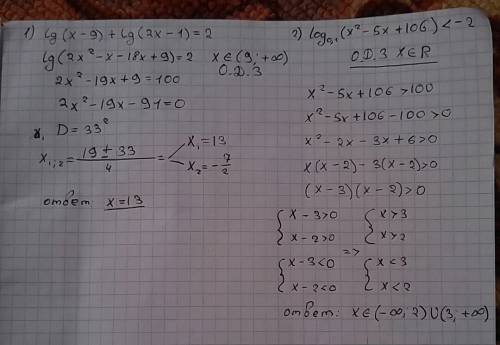 1) lg(x-9)+lg(2x-1)=2
lg(2x²-x-18x+9)=2 x∈(9;+∞)
О.Д.З
2x²-19x+9=100
2x²-19x-91=0
D=33²
x₁;₂=(19±33)/4= x₁=13
x₂=-7/2
ответ: x=13
2) log₀,₁(x²-5x+106)<-2
О.Д.З X∈R
x²-5x+106>100
x²-5x+106-100>0
x²-2x-3x+6>0
x(x-2)-3(x-2)>0
(x-3)(x-2)>0
{x-3>0 {x>3
x-2>0 x>2
=>
{x-3<0 {x<3
x-2<0 x<2
ответ: x∈(-∞;2)U(3;+∞)